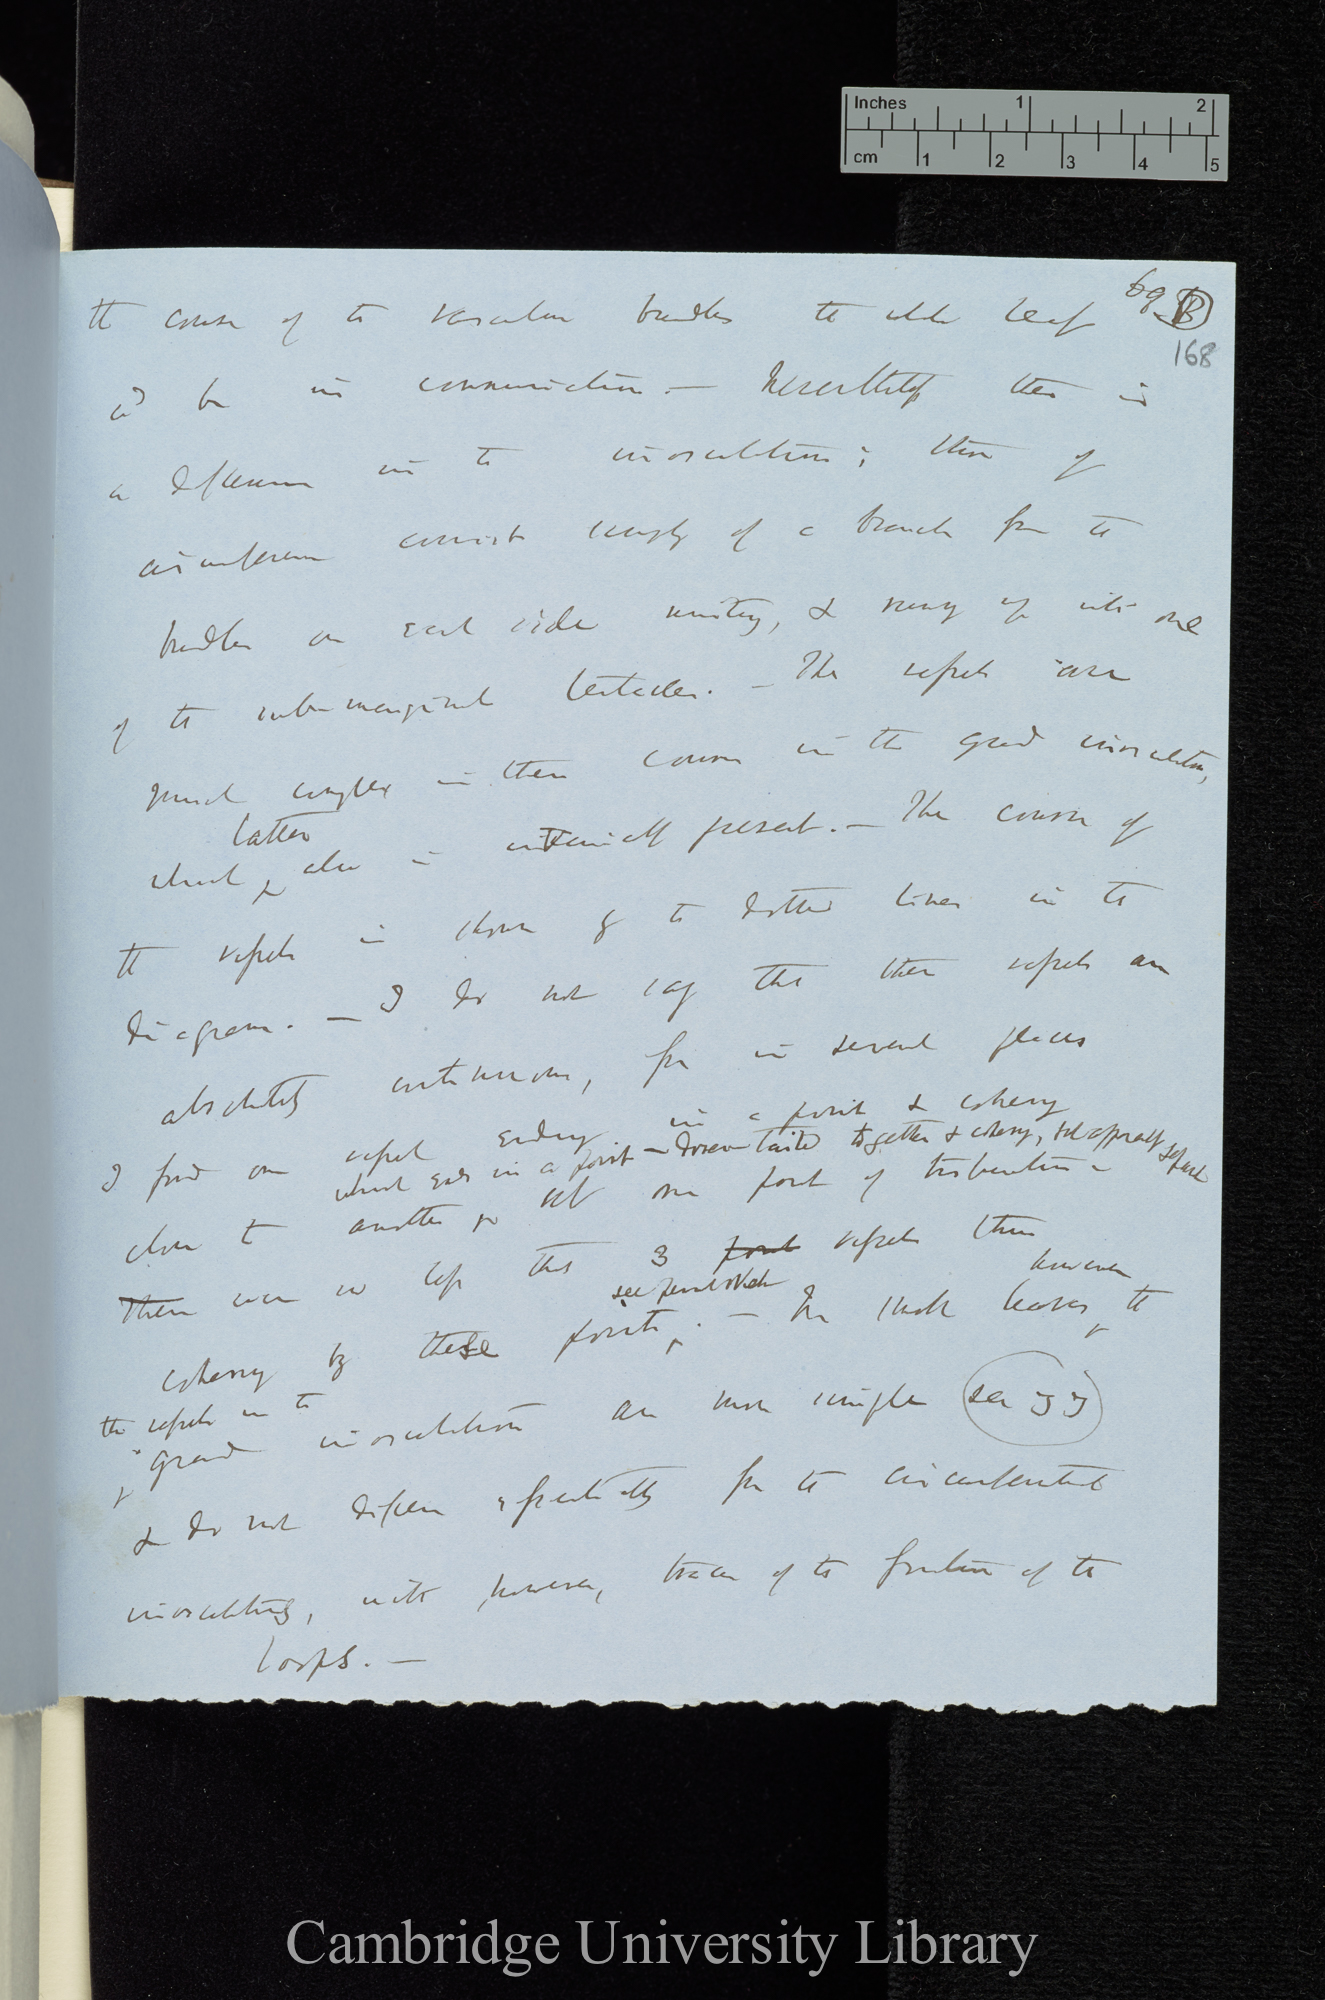 Inches 1 2
cm 1 2 3 4 5
69 B
168
the course of the vascular bundles the whole leaf
wd be in communication — Nevertheless there is
a difference in the inosculations; those of
circumference consist simply of a branch from the
bundles on each side uniting, & running up into one
of the sub-marginal tentacles. — The vessels are
much complex in their course in the grand inosculation,
latter
which also is present. — The course of
the vessels is shown by the dotted lines in the
diagram. — I do not say that these vessels are
absolutely continuous, for in several places
I found one vessel ending in a point & cohering
which ends in a point — together & cohering,
close to another at one point of
There were so left that 3 point vessels thus
see pencil sketch however
cohering by these points. — In small leaves the
the vessels in the
grand inosculation are more simple see
& do not differ essentially from the circumferential
inosculations, with however, traces of the of the
loops. —
Cambridge University Library